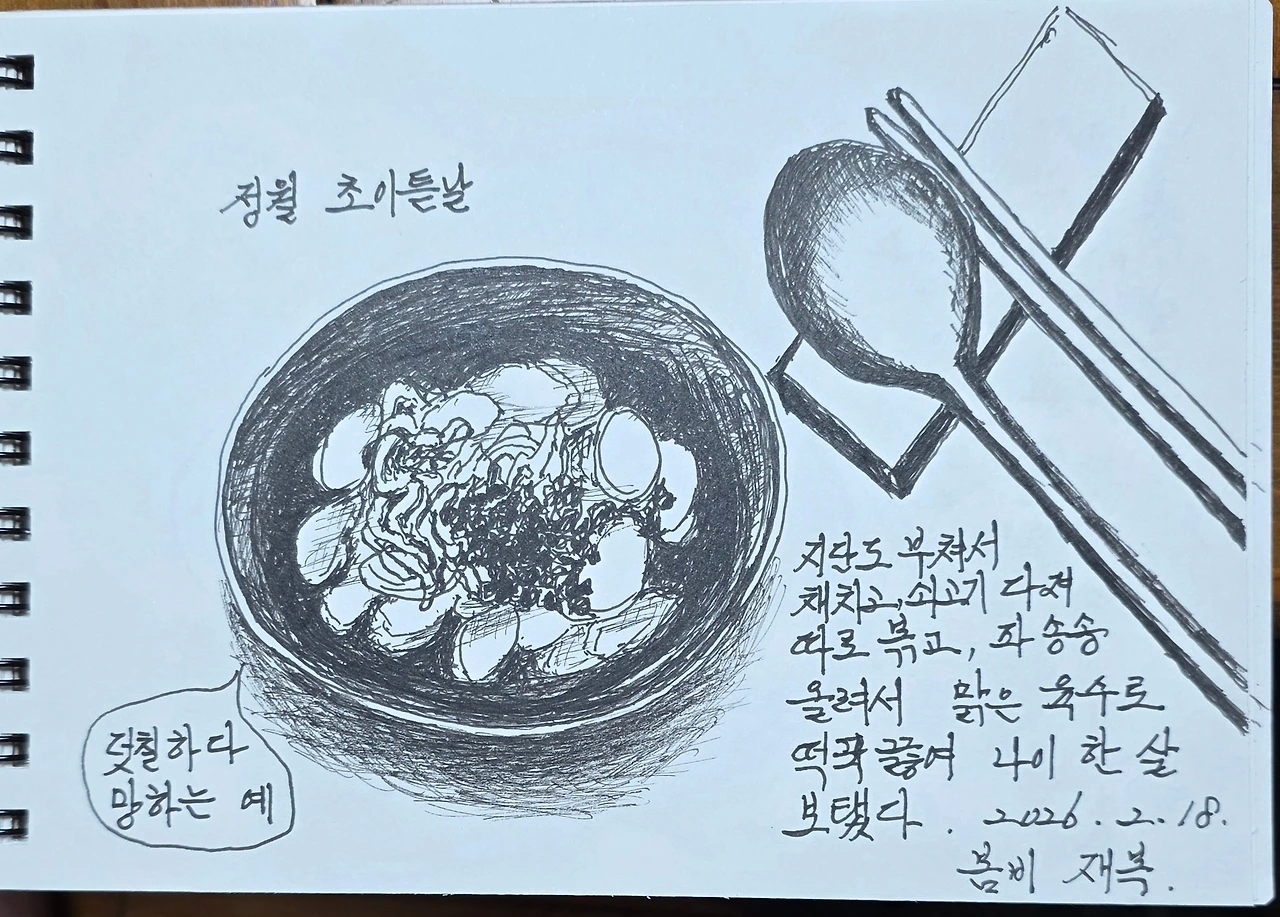 정월 초이튿날
지단도 부쳐서
채치고, 쇠고기 다져
따로 볶고, 파 송송
올려서 맑은 육수로
떡국 끓여 나이 한 살
보탰다. 2026. 2. 18.
봄비 재복.
덧칠하다
망하는 예